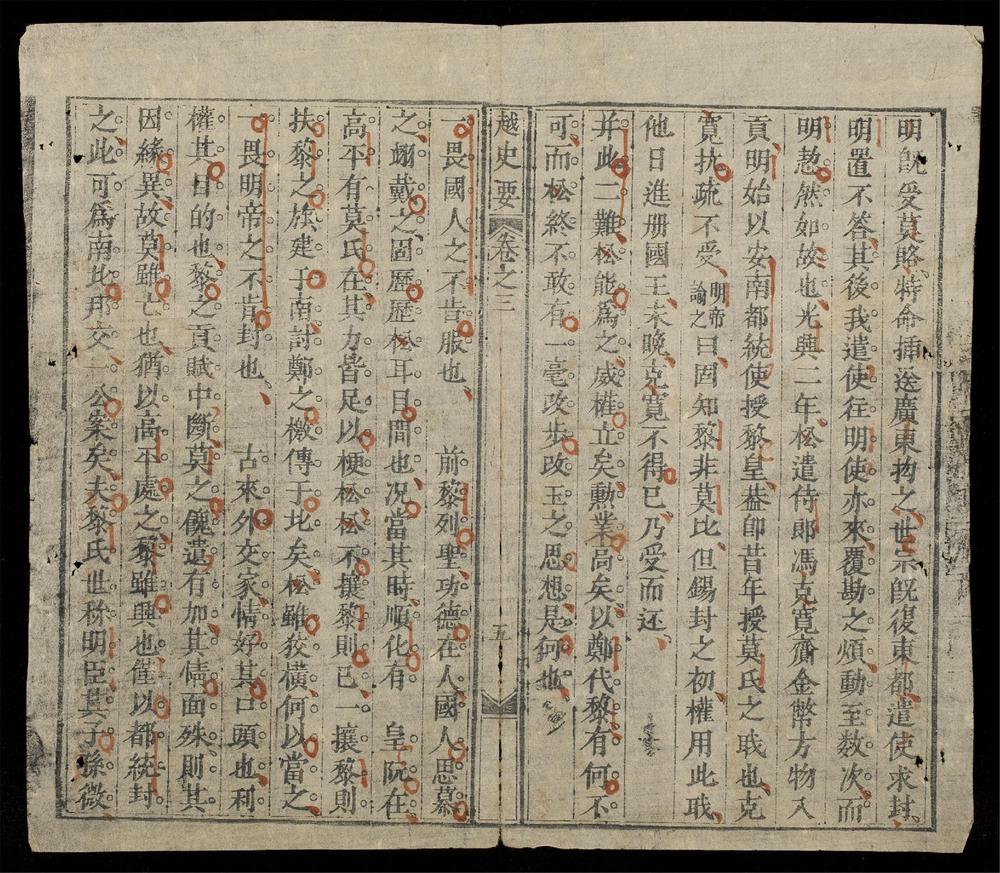 明旣受莫賂特命揷送廣東拘之世宗旣復東都遣使求封
明置不答其後我遣使往明使亦來覆勘之煩動至数次而
明愸然如故也光興二年松遣侍郎馮克寬齎金幣方物入
貢明始以安南都統使授黎皇葢卽昔年授莫氏之聀也克
寬执疏不受明帝諭之曰固知黎非莫比但錫封之初權用此聀
他日進册國王未晚克寬不得已乃受而还
并此二難松能爲之威權立矣勳業高矣以鄭代黎有何不
可而松終不敢有一毫改步改玉之思想是何也
越史要
卷之三
五
一畏國人之不肯服也 前黎列聖功德在人國人思慕
之翊戴之固歷歷松耳目間也况當其時順化有 皇阮在
高平有莫氏在其力皆足以梗松松不攘黎則已一攘黎則
扶黎之旗建于南討鄭之檄傳于北矣松雖狡橫何以當之
一畏明帝之不肯封也 古來外交家情好其口頭也利
權其目的也黎之貢賦中斷莫之餽遺有加其情面殊則其
因緣異故莫雖亡也猶以高平處之黎雖興也僅以都統封
之此可爲南北邦交一公案矣夫黎氏世称明臣其子孫微